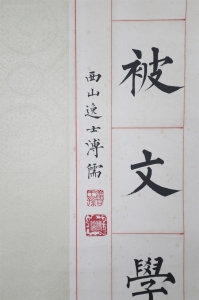 被文學
西山逸士溥儒